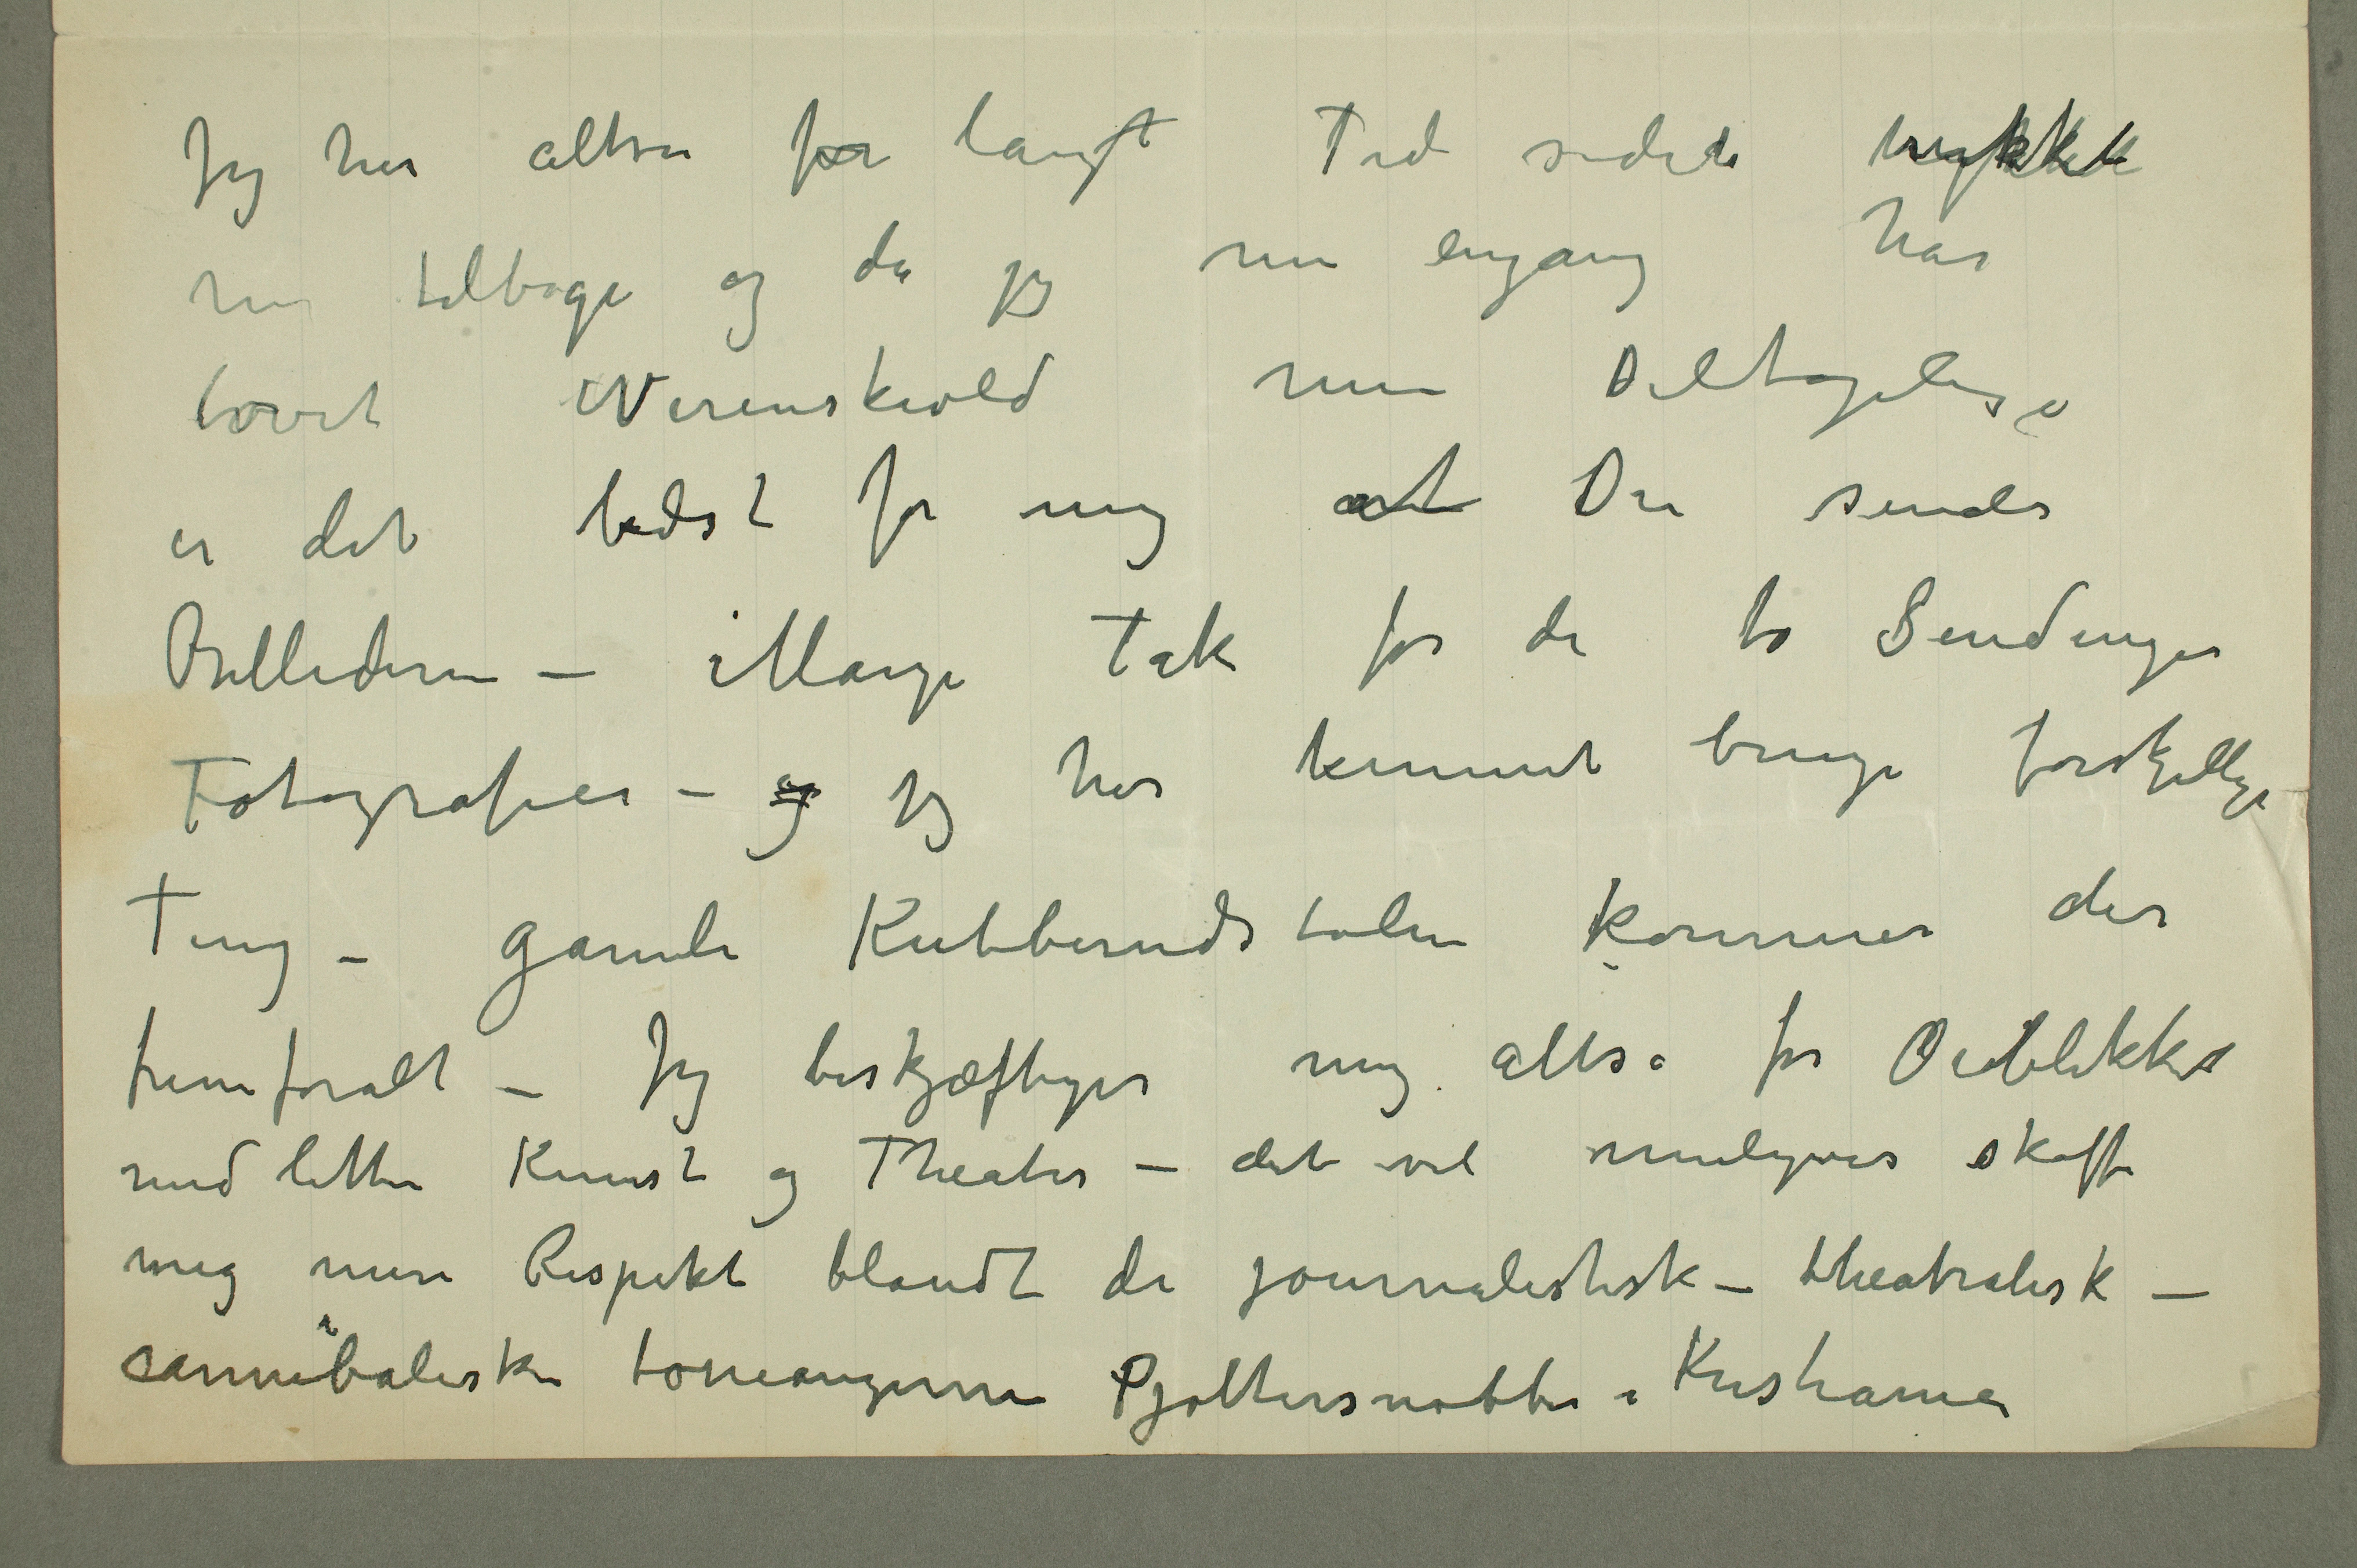 Jeg har altså for langt Tid siden trykket
mig tilbage og da jeg nu engang har
lovet Werenskiold min Deltagelse
er det bedst for mig at Du sender
Billederne – Mange Tak for de to Sendinger
Fotografier – og jeg har kunnet bruge forskjellige
Ting – gamle Kubberudstolen kommer der
fremforalt – Jeg beskjæftiger mig altså for Øieblikket
med lettere Kunst og Theater – det vil muligens skaffe
mig mere Respekt blandt de journalistisk – theatralisk –
cannibaliske toneangivende Pjoltersnobber i Kristiania